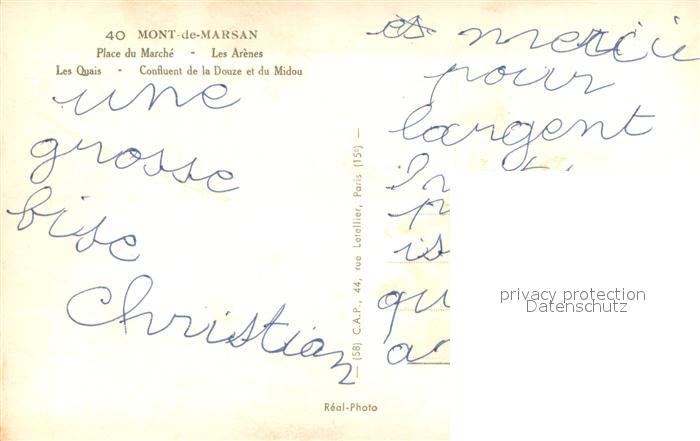 40 MONT-de-MARSAN
Place du Marché - Les Arènes
Les Quais - Confluent de la Douze et du Midou
une
grosse
bise
Christian
(58) C.A.P., 44, rue Letellier, Paris (15e)
Réal-Photo
et merci
pour
largent
is
qu
privacy protection
Datenschutz